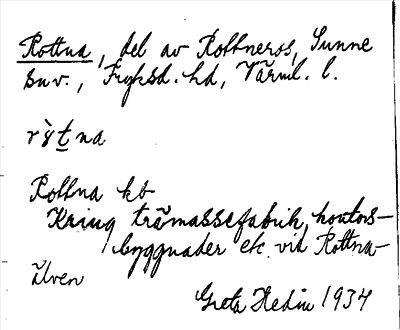 Rottna, del av Rottneros, Sunne
snv., Fryksd. hd, Värml. l.
rỳt̠na
Rottna kb
Kring trämassefabrik, kontors-
byggnader etc. vid Rottna-
älven
Greta Hedin 1934